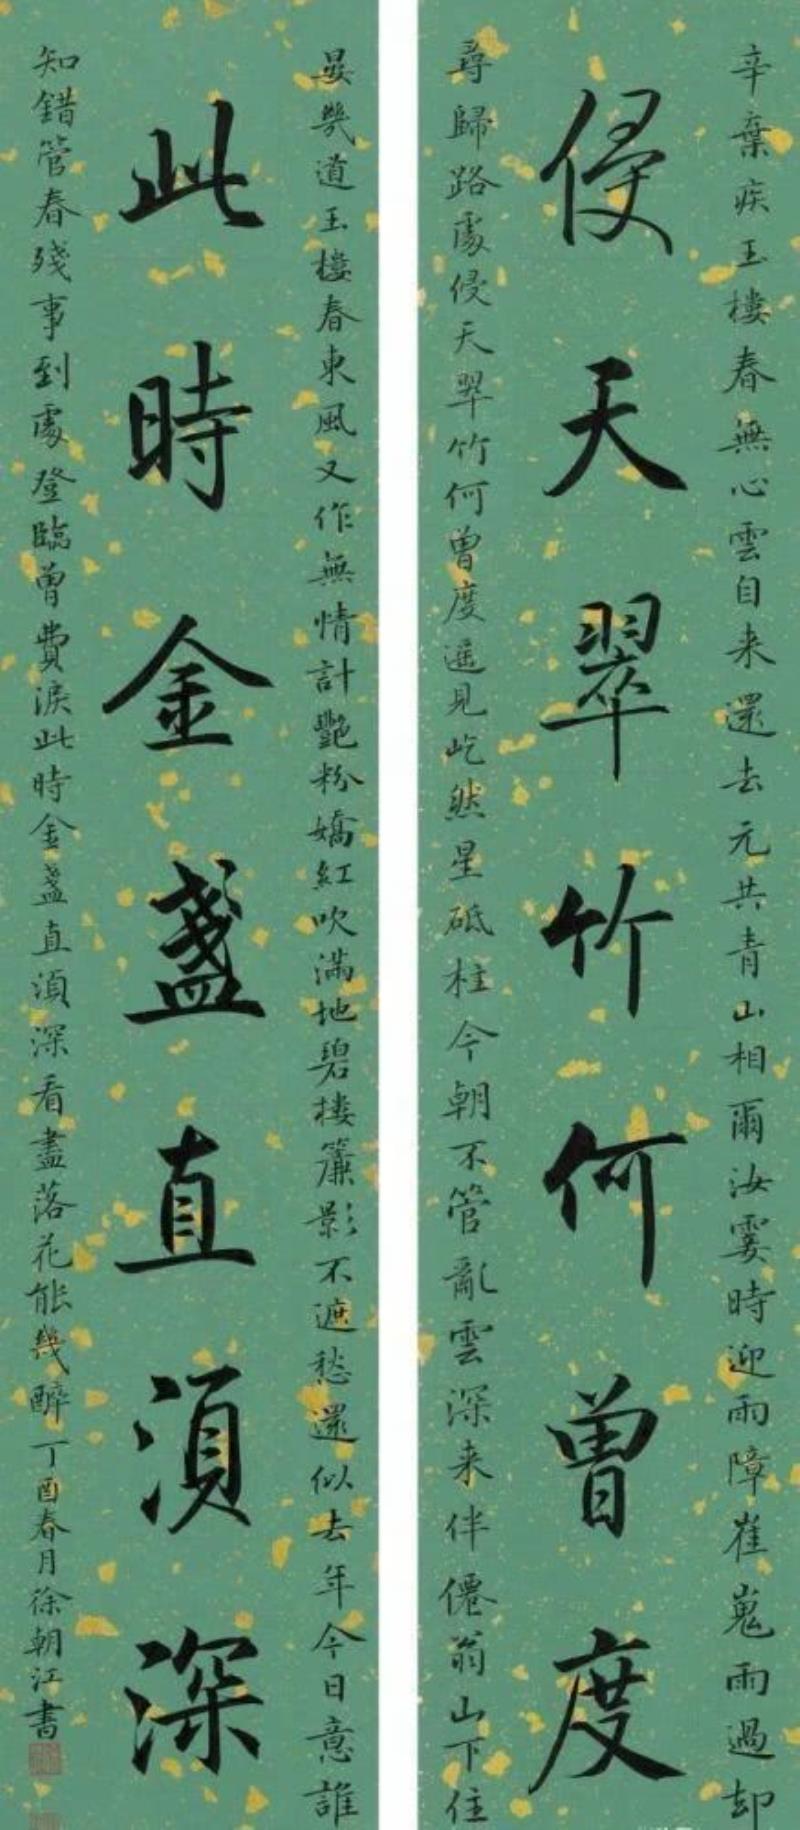 辛棄疾玉樓春無心雲自来還去元共青山相爾汝霎時迎雨障崔嵬雨過却
侵天翠竹何曾度
尋歸路處侵天翠竹何曾度遥見屹然星砥柱今朝不管亂雲深来伴僊翁山下住
晏幾道玉樓春東風又作無情計艷粉嬌紅吹滿地碧樓簾影不遮愁還似去年今日意誰
此時金盞直湏深
知錯管春殘事到處登臨曾費淚此時金盞直湏深看盡落花能幾醉丁酉春月徐朝江書